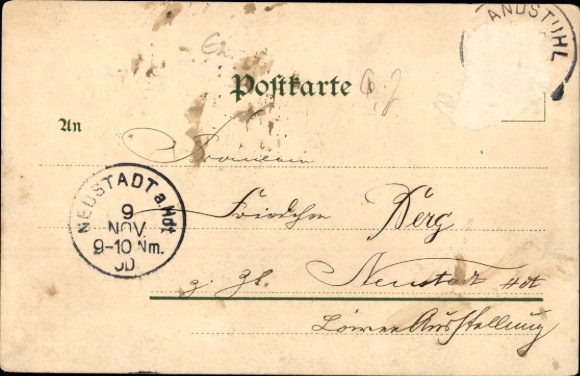 ANDSTUHL
Postkarte
An
Fräulein
NEUSTADT a. Hdt
9
NOV.
9-10 Nm.
00
Berg
z. Zt. Neustadt Hdt
Löwen Ausstellung